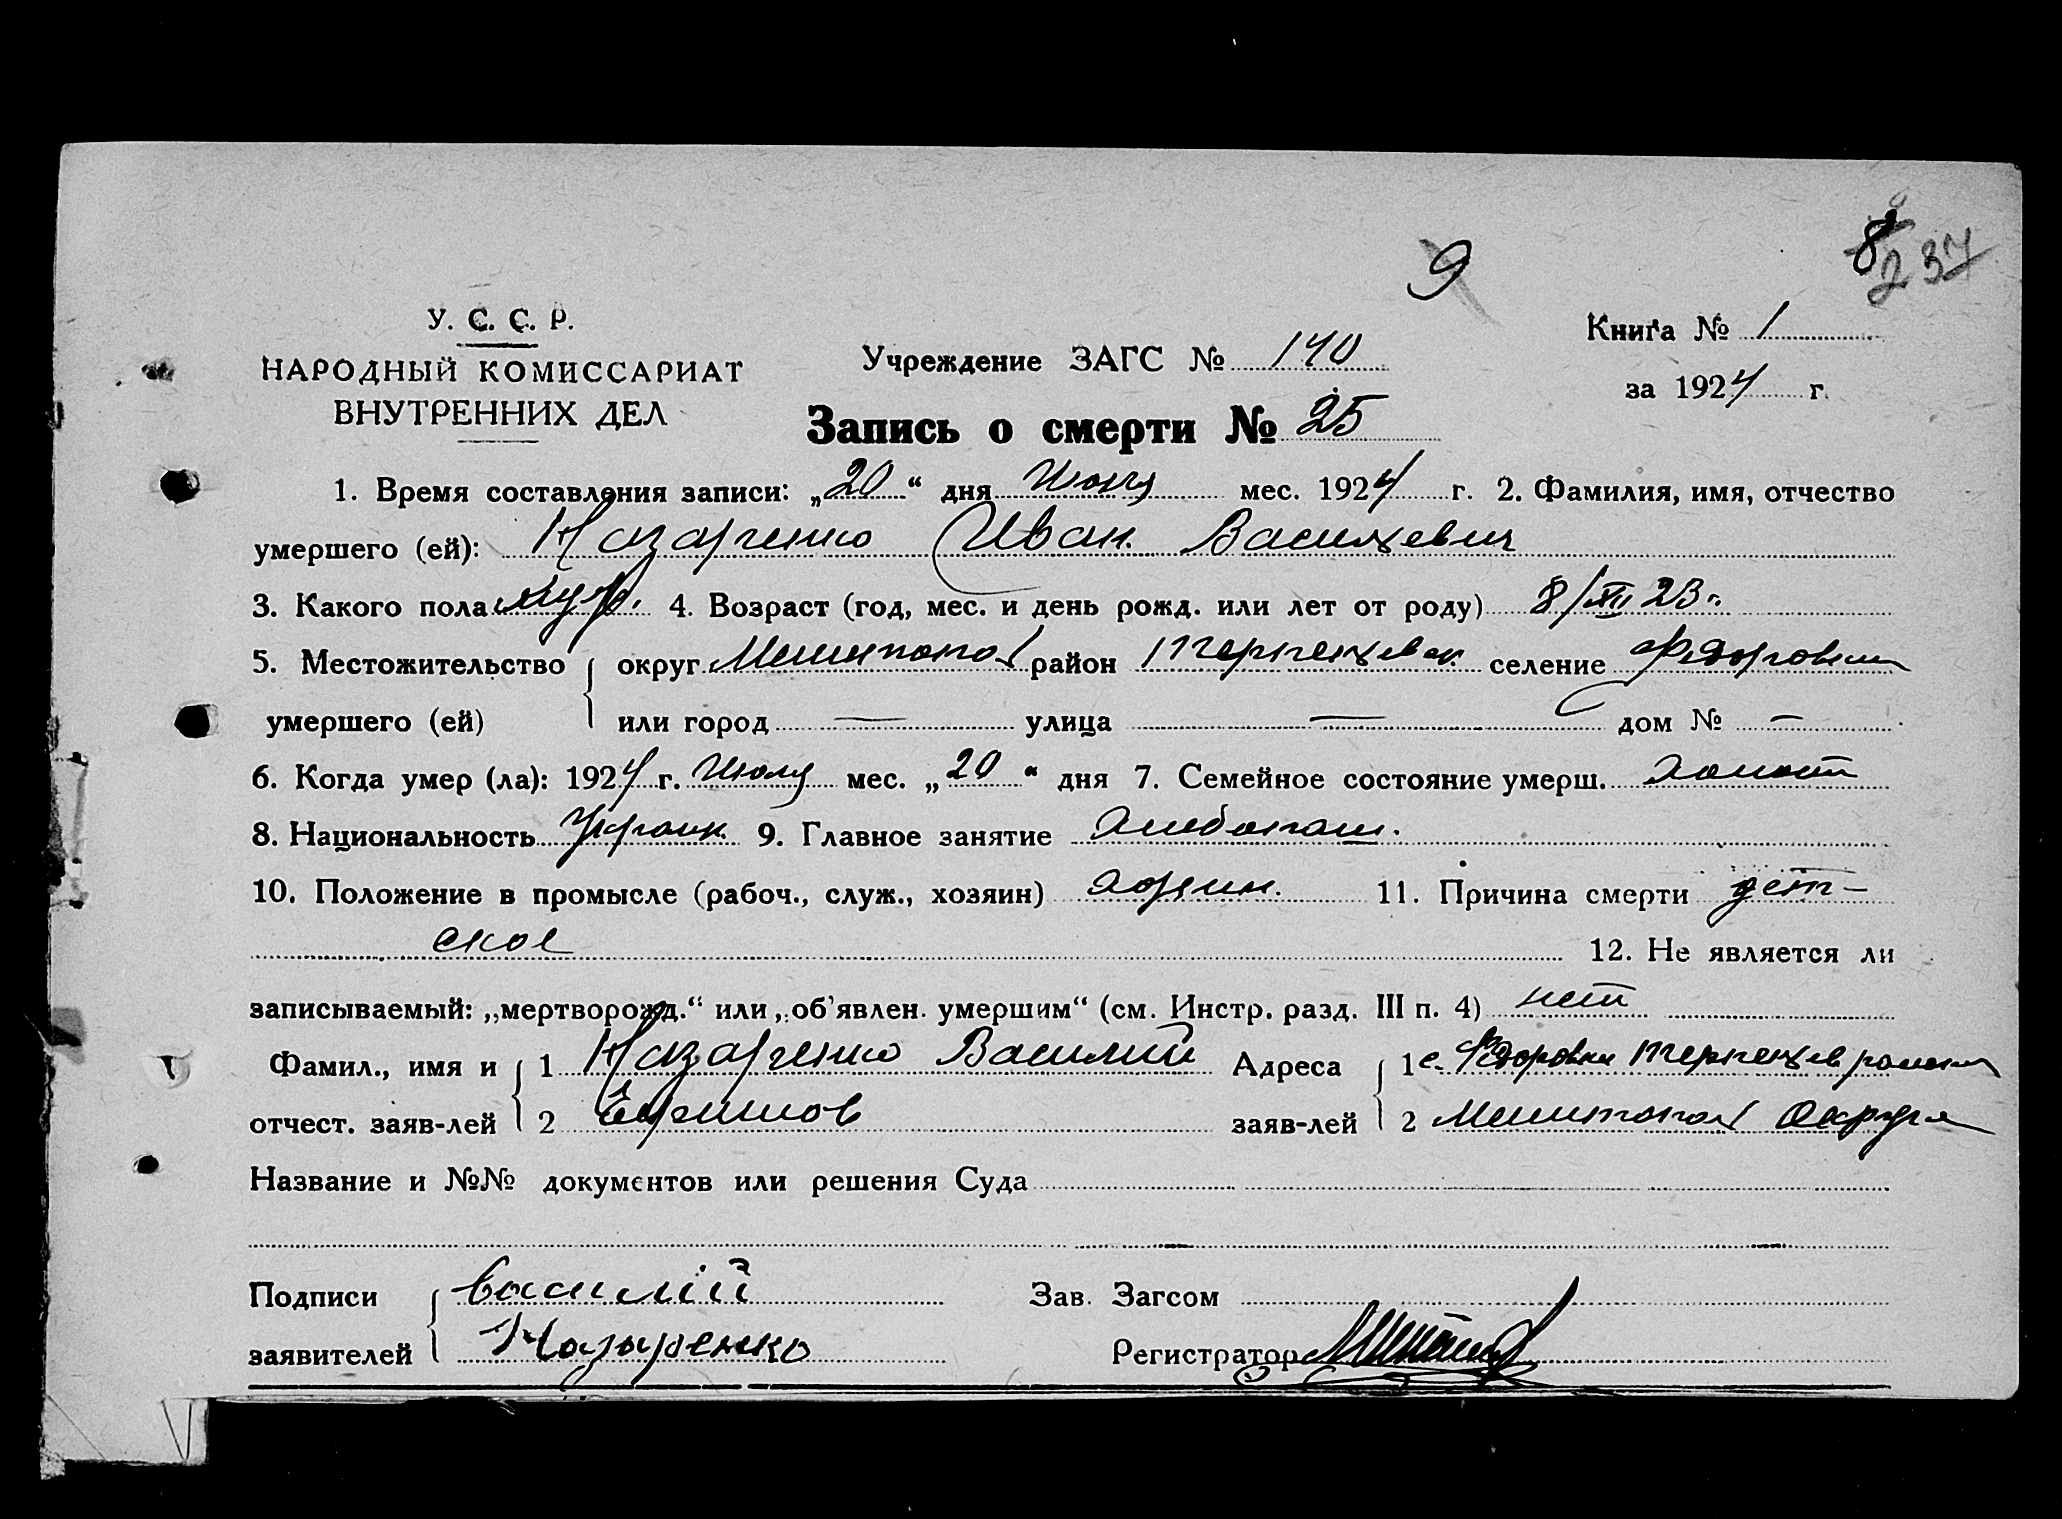 9
8
237
У. С. С. Р.
НАРОДНЫЙ КОМИССАРИАТ
ВНУТРЕННИХ ДЕЛ
Учреждение ЗАГС № 140
Книга № 1
за 1924 г.
Запись о смерти № 25
1. Время составления записи: „20“ дня Июля мес. 1924 г. 2. Фамилия, имя, отчество
умершего (ей): Назаренко Иван Васильевич
3. Какого пола муж. 4. Возраст (год, мес. и день рожд. или лет от роду) 8/XII 23 г.
5. Местожительство округ Мелитопол район Терпеньевск. селение Федоровка
умершего (ей) или город — улица — дом № —
6. Когда умер (ла): 1924 г. Июля мес. „20“ дня 7. Семейное состояние умерш. холост
8. Национальность Украин. 9. Главное занятие хлебопаш.
10. Положение в промысле (рабоч., служ., хозяин) хозяин. 11. Причина смерти дет-
ское 12. Не является ли
записываемый: „мертворожд.“ или „об'явлен. умершим“ (см. Инстр. разд. III п. 4) нет
Фамил., имя и 1 Назаренко Василий Адреса 1 с. Федоровка Терпеньев района
отчест. заяв-лей 2 Ефимов заяв-лей 2 Мелитопол Округа
Название и №№ документов или решения Суда
Подписи Василий Зав. Загсом
заявителей Назаренко Регистратор